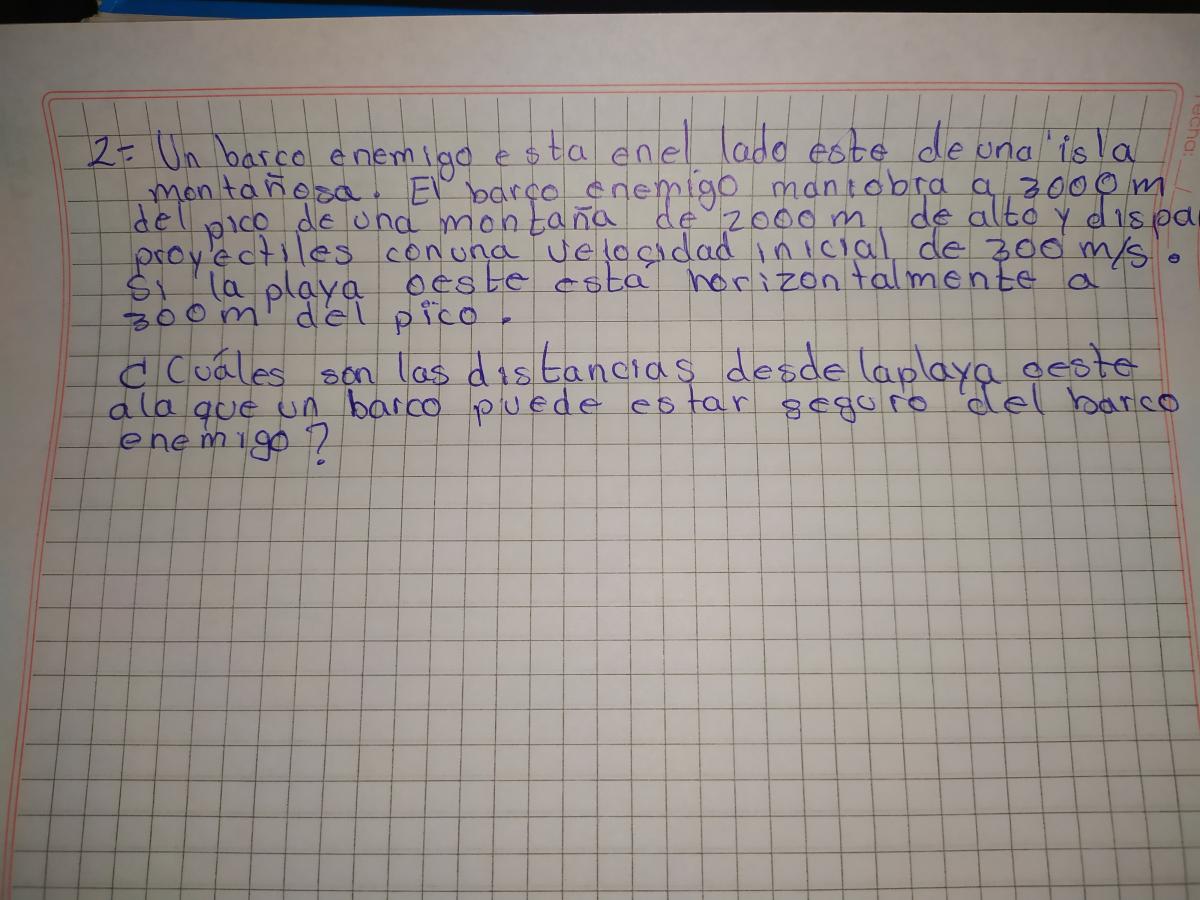 2= Un barco enemigo esta en el lado este de una isla
montañosa. El barco enemigo maniobra a 3000 m
del pico de una montaña de 2000 m de alto y dispa
proyectiles con una velocidad inicial de 300 m/s.
Si la playa oeste está horizontalmente a
300 m del pico.
¿Cuáles son las distancias desde la playa oeste
a la que un barco puede estar seguro del barco
enemigo?
Fecha: